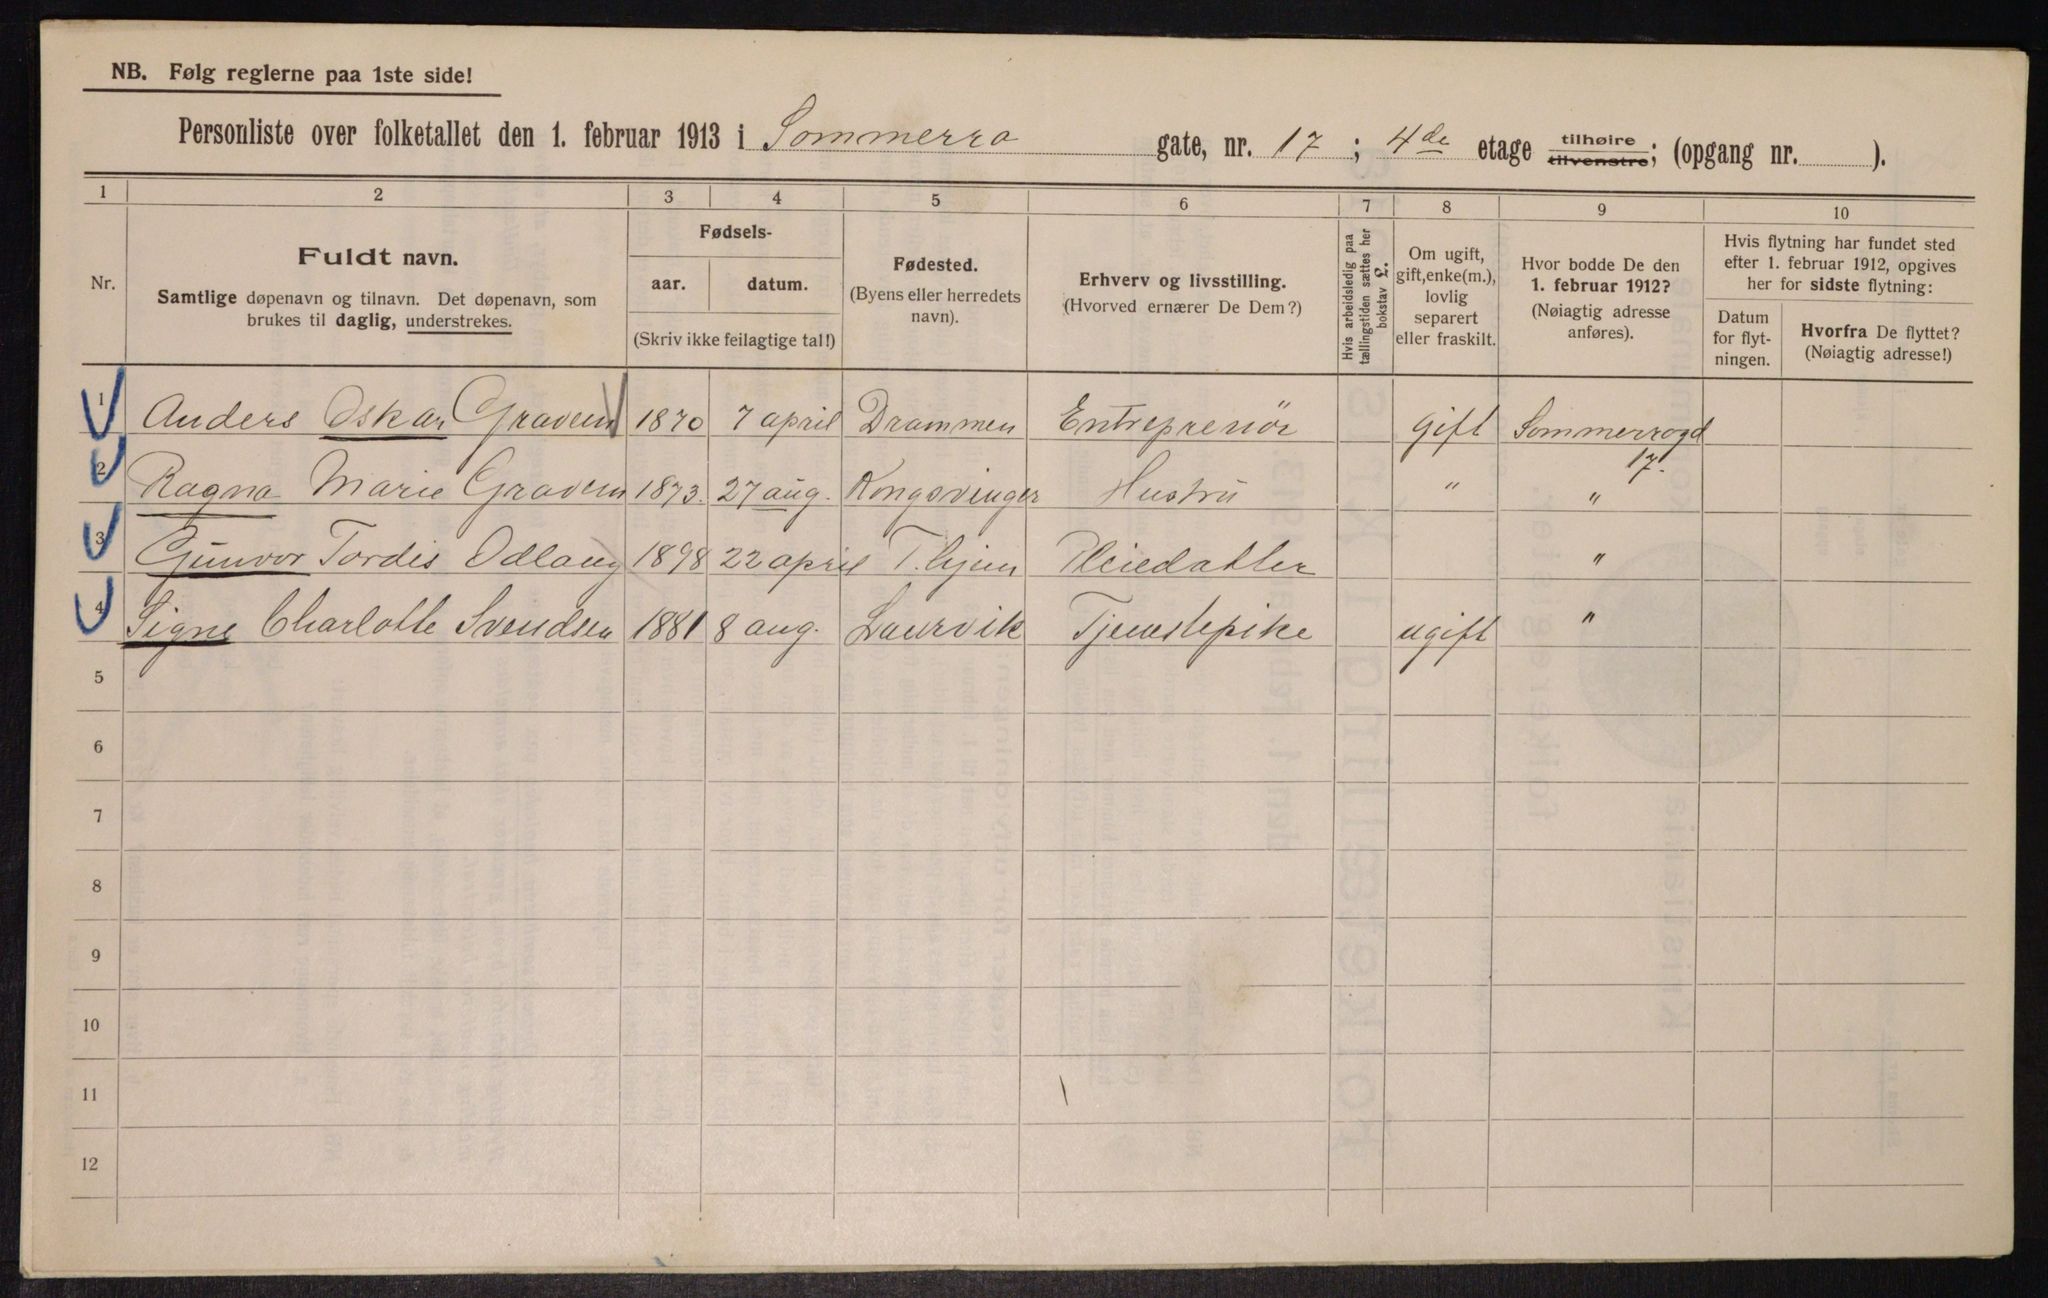 NB. Følg reglerne paa 1ste side!
Personliste over folketallet den 1. februar 1913 i Sommerro gate, nr. 17; 4de etage tilhøire tilvenstre; (opgang nr. ).
1 2 3 4 5 6 7 8 9 10
Nr.
Fuldt navn.
Samtlige døpenavn og tilnavn. Det døpenavn, som
brukes til daglig, understrekes.
Fødsels-
aar. datum.
(Skriv ikke feilagtige tal!)
Fødested.
(Byens eller herredets
navn).
Erhverv og livsstilling.
(Hvorved ernærer De Dem?)
Hvis arbeidsledig paa
tællingstiden sættes her
bokstav £.
Om ugift,
gift, enke(m.),
lovlig
separert
eller fraskilt.
Hvor bodde De den
1. februar 1912?
(Nøiagtig adresse
anføres).
Hvis flytning har fundet sted
efter 1. februar 1912, opgives
her for sidste flytning:
Datum
for flyt-
ningen.
Hvorfra De flyttet?
(Nøiagtig adresse!)
1 Anders Oskar Gravem 1870 7 april Drammen Entreprenör gift Sommerrogd
17.
2 Ragna Marie Gravem 1873. 27 aug. Kongsvinger Hustru " "
3 Gunvor Tordis Odlaug 1898 22 april T.hjem Pleiedatter "
4 Signe Charlotte Svendsen 1881 8 aug. Laurvik Tjenestepike ugift "
5
6
7
8
9
10
11
12